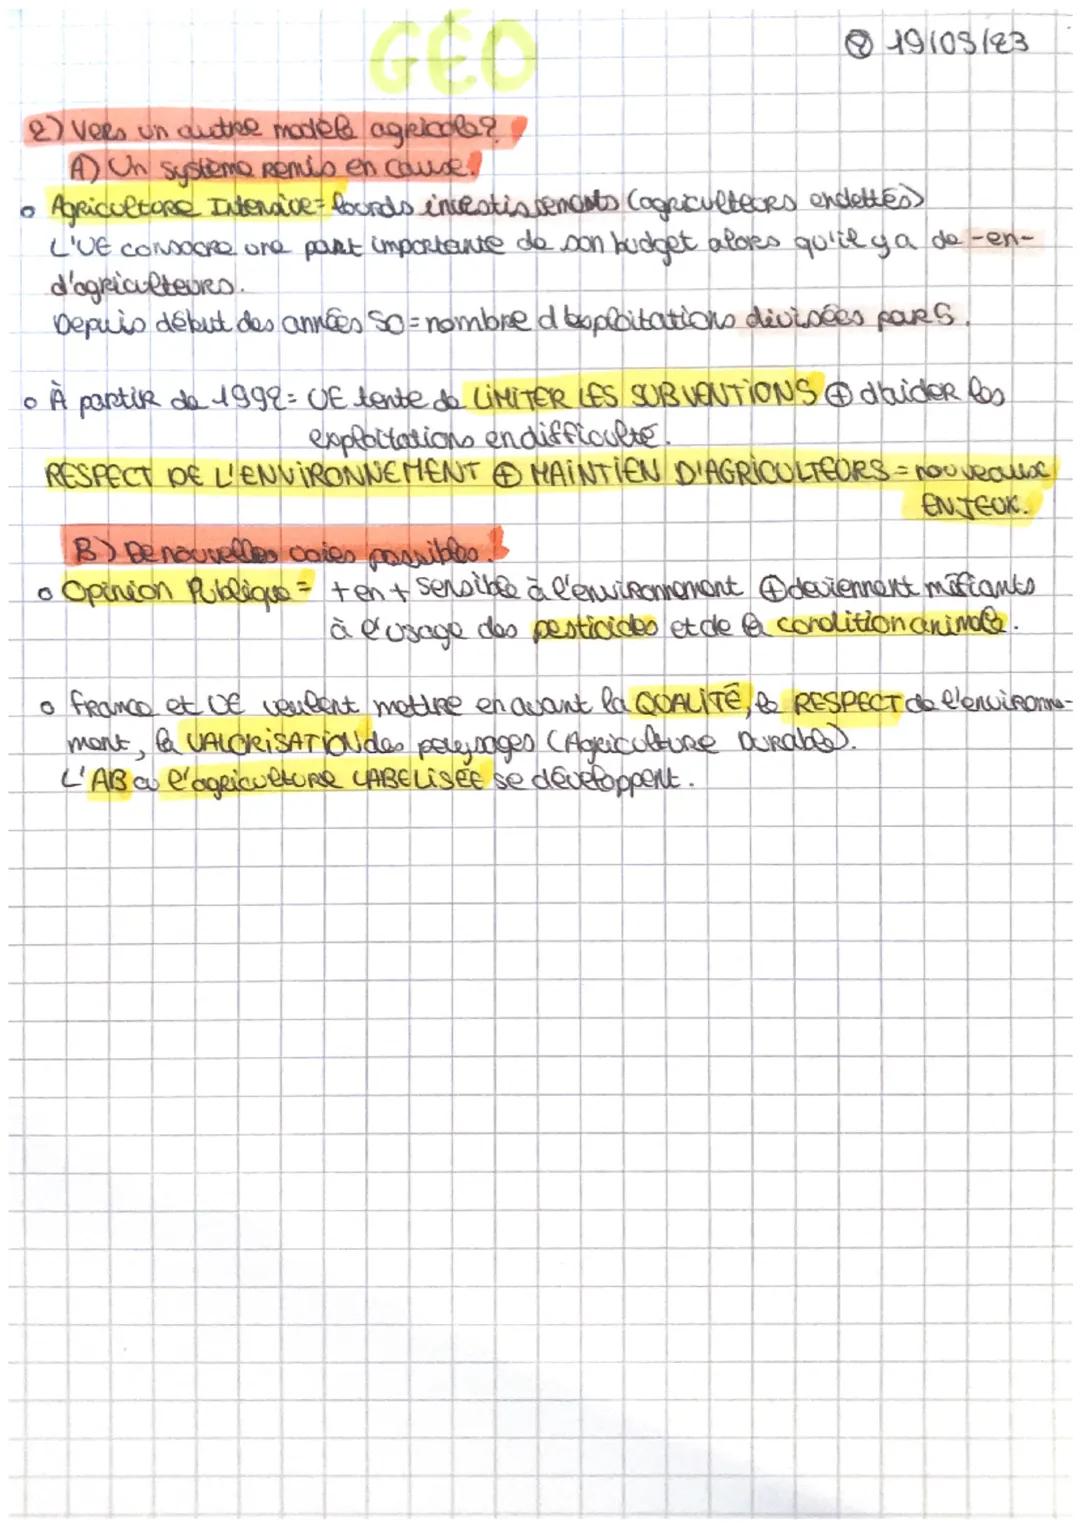 GÉO
② 19/03/23
2) Vers un autre modèle agricole?
A) Un système remis en cause.
o Agriculture Intensive = lourds investissements (agriculteurs endettés)
L'UE consacre une part importante de son budget alors qu'il y a de -en-
d'agriculteurs.
Depuis début des années 50 = nombre d'exploitations divisées par 5.
o À partir de 1992 = UE tente de LIMITER LES SUBVENTIONS ⊕ d'aider les
exploitations en difficulté.
RESPECT DE L'ENVIRONNEMENT ⊕ MAINTIEN D'AGRICULTEURS = nouveaux
ENJEUX.
B) De nouvelles voies possibles.
o Opinion Publique = + en + sensible à l'environnement ⊕ deviennent méfiants
à l'usage des pesticides et de la condition animale.
o France et UE veulent mettre en avant la QUALITÉ, le RESPECT de l'environne-
ment, la VALORISATION des paysages (Agriculture Durable).
L'AB ou l'agriculture LABELISÉE se développent.